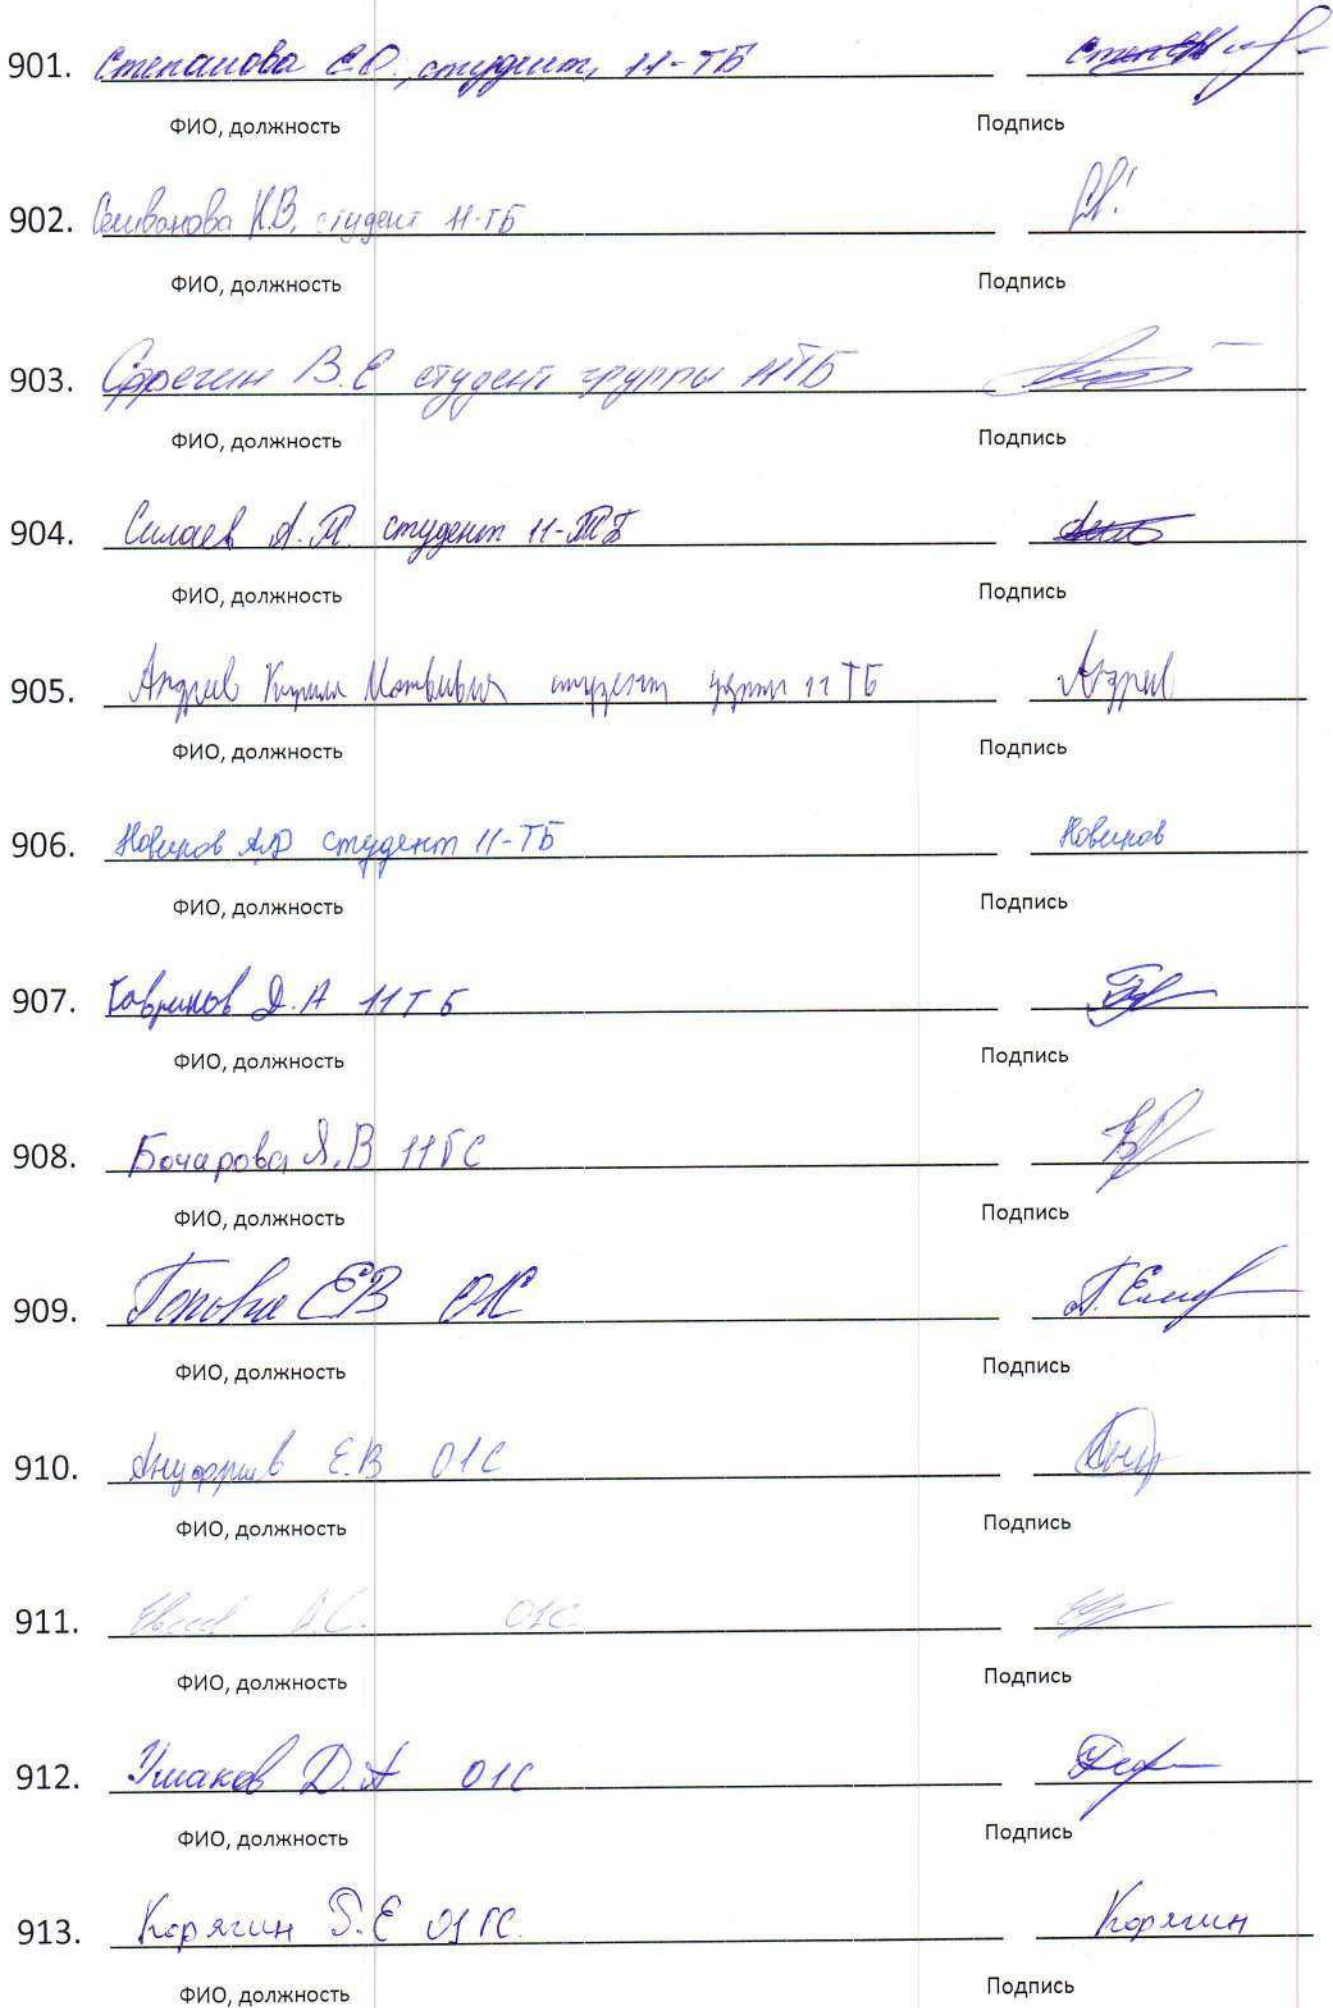 901. Степанова С.О., студент, 11-ТБ
ФИО, должность Подпись
902. Селиванова К.В. студент 11-ТБ
ФИО, должность Подпись
903. В.Е студент группы 11ТБ
ФИО, должность Подпись
904. Силаев А.П. студент 11-ТБ
ФИО, должность Подпись
905. Кирилл студент группы 11 ТБ
ФИО, должность Подпись
906. Новиков студент 11-ТБ Новиков
ФИО, должность Подпись
907. Гавриков Д.А 11ТБ
ФИО, должность Подпись
908. Бочарова Я.В 11ГС
ФИО, должность Подпись
909. Попова ЕВ
ФИО, должность Подпись
910. Ануфриев Е.В 01С
ФИО, должность Подпись
911. 01С
ФИО, должность Подпись
912. Ушаков Д.А 01С
ФИО, должность Подпись
913. Корягин Корягин
ФИО, должность Подпись